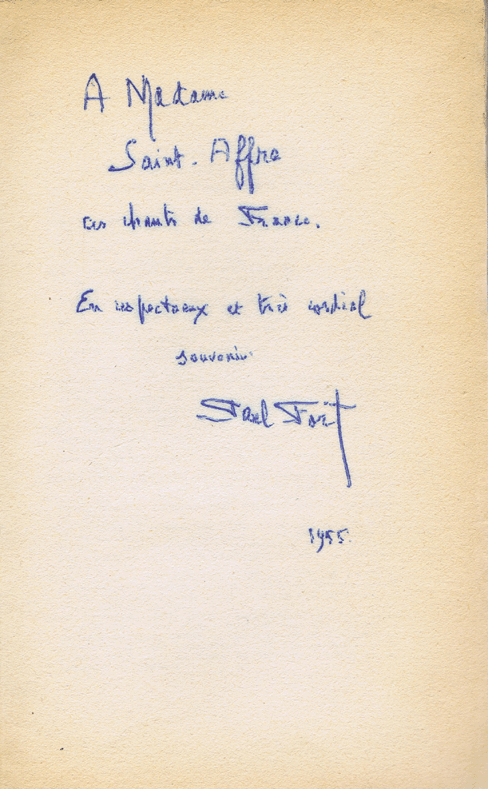 A Madame
Saint-Affre
ces chants de France.
En respectueux et très cordial
souvenir
Paul Fort
1955.